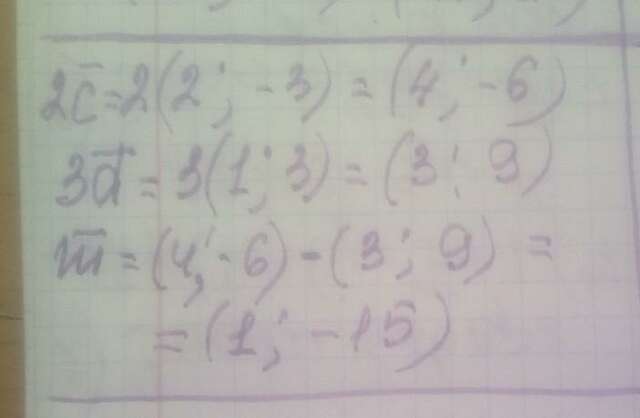 2c̅ = 2(2; -3) = (4; -6)
3a̅ = 3(1; 3) = (3; 9)
m̅ = (4; -6) - (3; 9) =
= (1; -15)